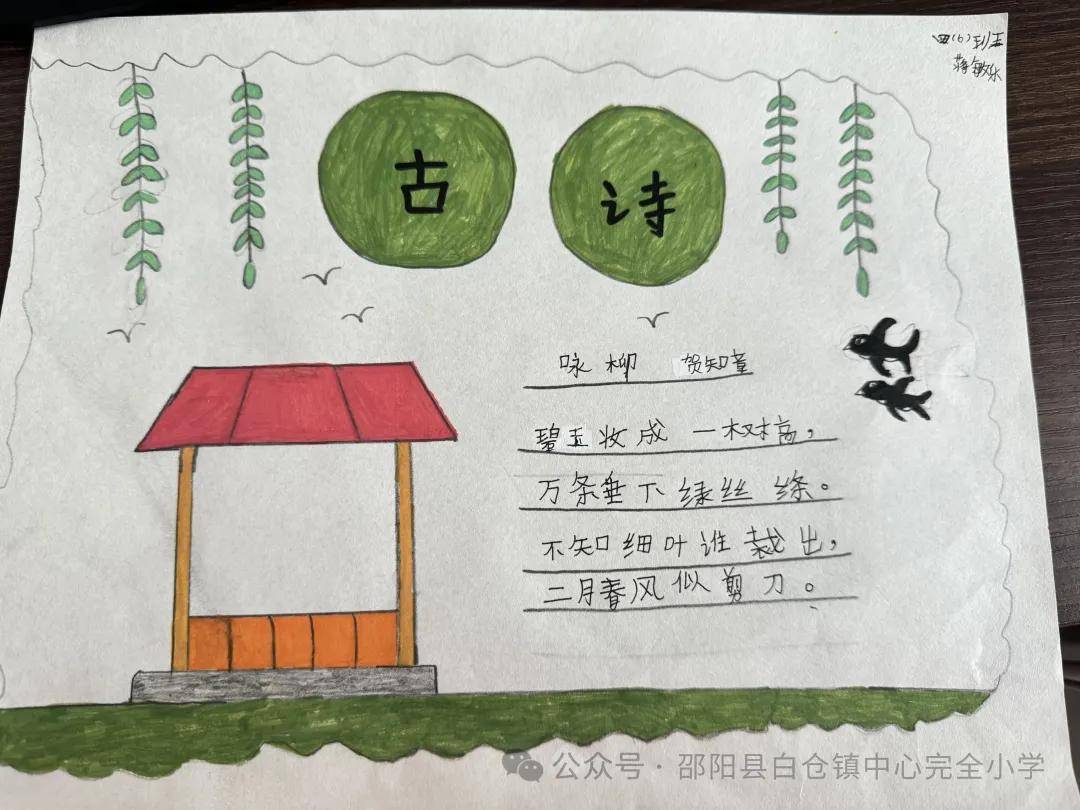 四(6)班
蒋敏乐
古诗
咏柳 贺知章
碧玉妆成一树高，
万条垂下绿丝绦。
不知细叶谁裁出，
二月春风似剪刀。
公众号·邵阳县白仓镇中心完全小学